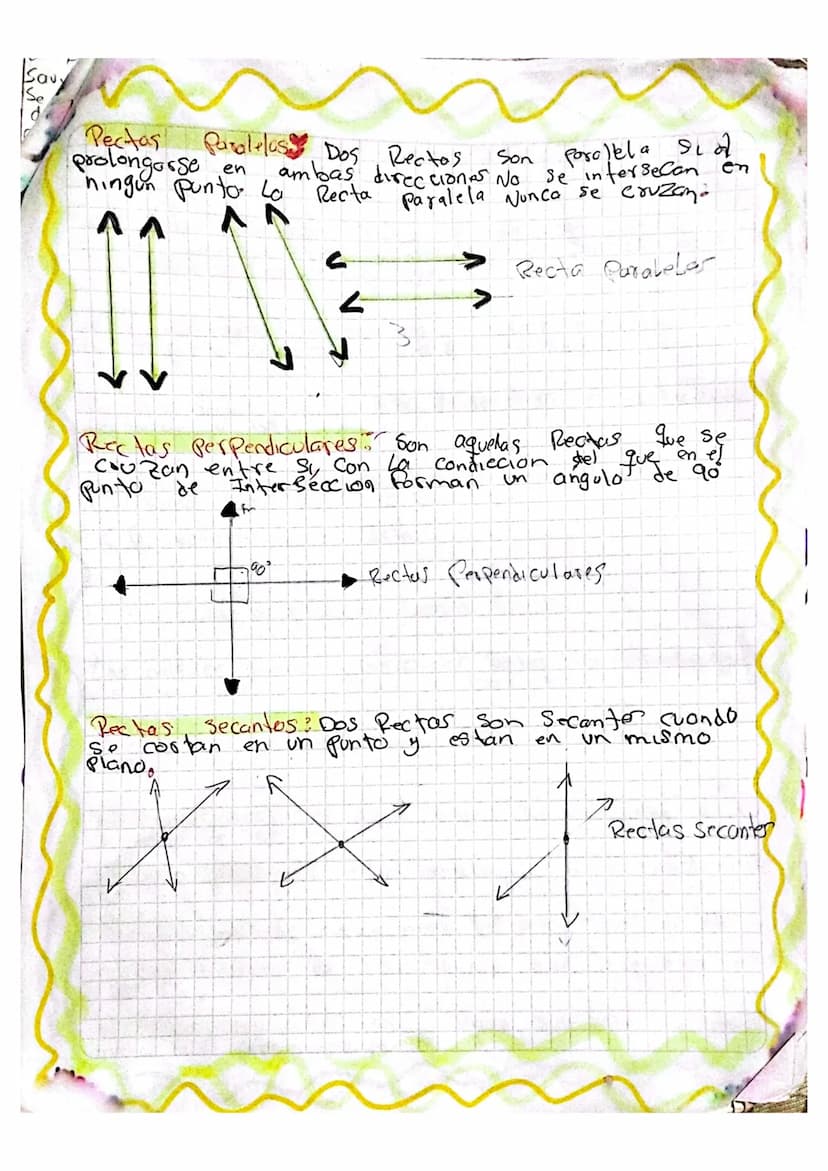 Sav
Se
d
Rectas Paralelas Dos Rectas son paralela si al
prolongarse en ambas direcciones No se intersecan en
ningún punto. La Recta paralela Nunca se cruzan.
Recta Paralelas
3
Rectas perpendiculares: Son aquellas Rectas que se
cruzan entre si, con La condiccion del que en el
punto de Intersección forman un angulo de 90°
90°
Rectas Perpendiculares
Rectas secantes: Dos Rectas son Secantes cuando
se costan en un punto y estan en un mismo
plano.
Rectas Secantes